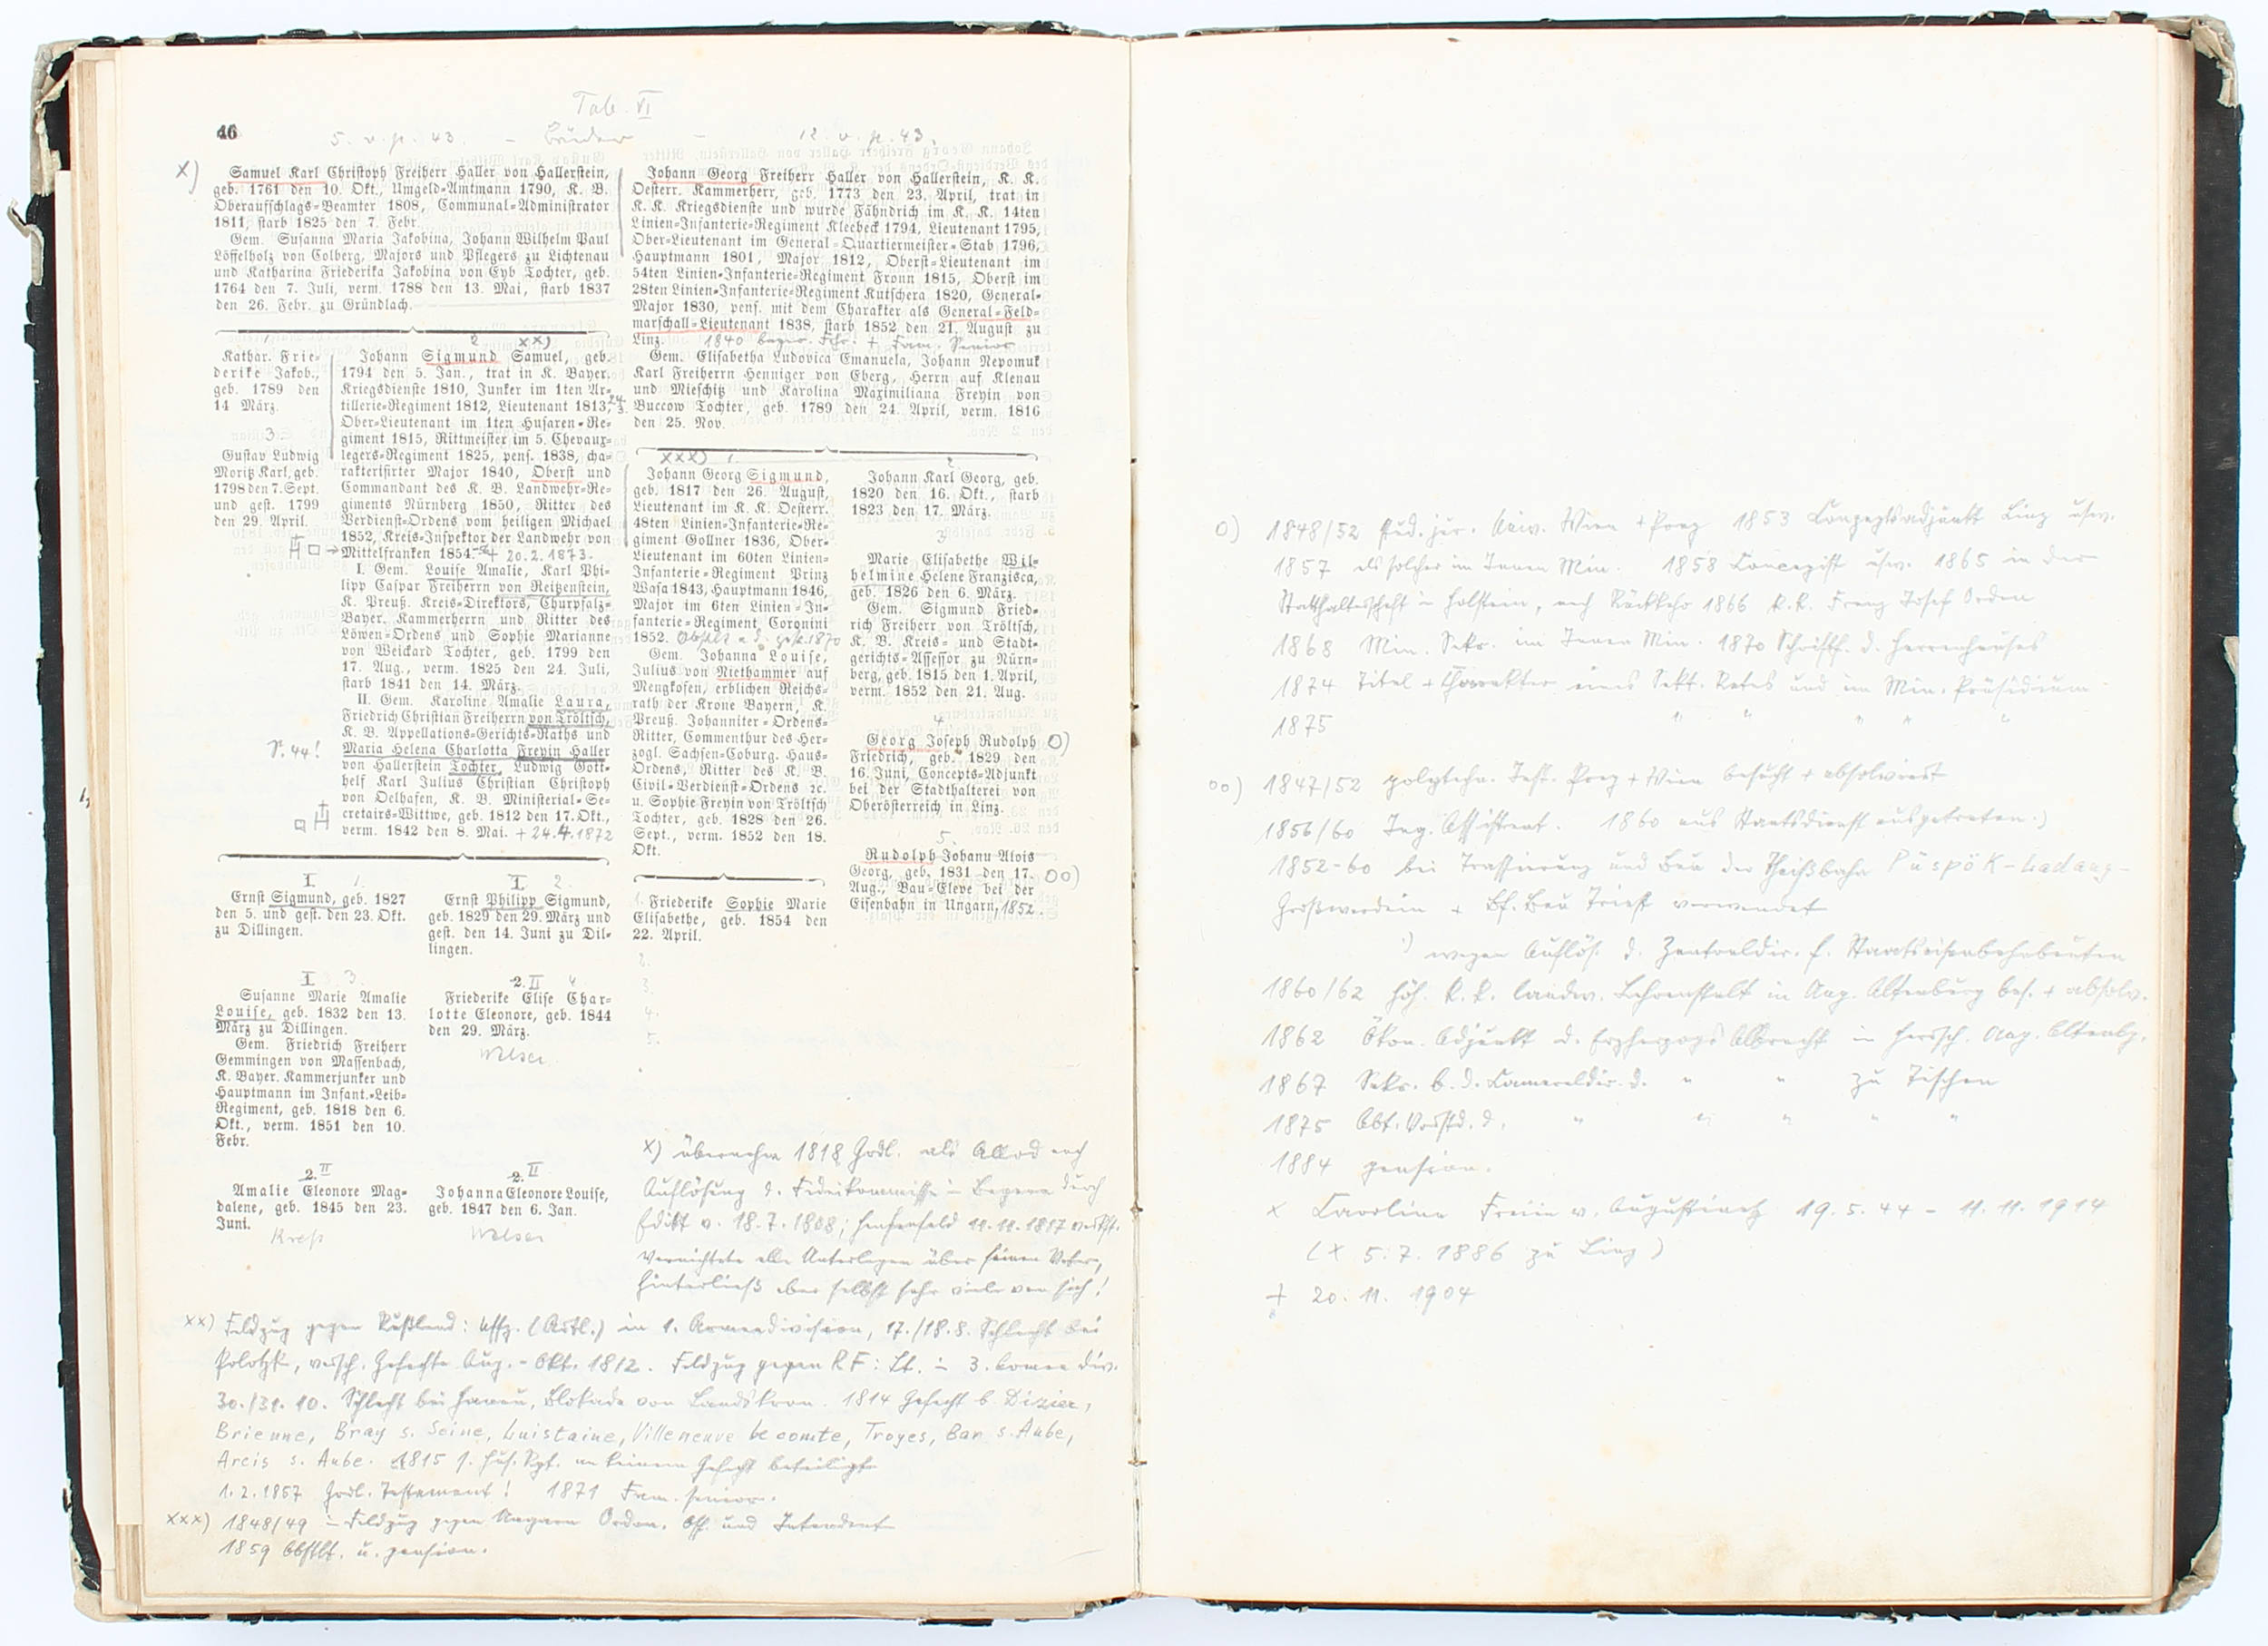 Tab. VI
46
5. v. p. 43. – Brüder – 12. v. p. 43.
x)
Samuel Karl Christoph Freiherr Haller von Hallerstein,
geb. 1761 den 10. Okt., Umgeld-Amtmann 1790, K. B.
Oberaufschlags-Beamter 1808, Communal-Administrator
1811, starb 1825 den 7. Febr.
Gem. Susanna Maria Jakobina, Johann Wilhelm Paul
Löffelholz von Colberg, Majors und Pflegers zu Lichtenau
und Katharina Friederika Jakobina von Eyb Tochter, geb.
1764 den 7. Juli, verm. 1788 den 13. Mai, starb 1837
den 26. Febr. zu Gründlach.
1
Kathar. Frie-
derike Jakob.,
geb. 1789 den
14 März.
3.
Gustav Ludwig
Moritz Karl, geb.
1798 den 7. Sept.
und gest. 1799
den 29. April.
2 xx)
Johann Sigmund Samuel, geb.
1794 den 5. Jan., trat in K. Bayer.
Kriegsdienste 1810, Junker im 1ten Ar-
tillerie-Regiment 1812, Lieutenant 1813, 24/3.
Ober-Lieutenant im 1ten Husaren-Re-
giment 1815, Rittmeister im 5. Chevaux-
legers-Regiment 1825, pens. 1838, cha-
rakterisirter Major 1840, Oberst und
Commandant des K. B. Landwehr-Re-
giments Nürnberg 1850, Ritter des
Verdienst-Ordens vom heiligen Michael
1852, Kreis-Inspektor der Landwehr von
Mittelfranken 1854. + 20.2.1873.
I. Gem. Louise Amalie, Karl Phi-
lipp Caspar Freiherrn von Reitzenstein,
K. Preuß. Kreis-Direktors, Churpfalz-
Bayer. Kammerherrn und Ritter des
Löwen-Ordens und Sophie Marianne
von Weickard Tochter, geb. 1799 den
17. Aug., verm. 1825 den 24. Juli,
starb 1841 den 14. März.
II. Gem. Karoline Amalie Laura,
Friedrich Christian Freiherrn von Tröltsch,
K. B. Appellations-Gerichts-Raths und
Maria Helena Charlotta Freyin Haller
von Hallerstein Tochter, Ludwig Gott-
helf Karl Julius Christian Christoph
von Oelhafen, K. B. Ministerial-Se-
cretairs-Wittwe, geb. 1812 den 17. Okt.,
verm. 1842 den 8. Mai. + 24.4.1872
P. 44!
I. 1.
Ernst Sigmund, geb. 1827
den 5. und gest. den 23. Okt.
zu Dillingen.
I. 2
Ernst Philipp Sigmund,
geb. 1829 den 29. März und
gest. den 14. Juni zu Dil-
lingen.
I. 3.
Susanne Marie Amalie
Louise, geb. 1832 den 13.
März zu Dillingen.
Gem. Friedrich Freiherr
Gemmingen von Massenbach,
K. Bayer. Kammerjunker und
Hauptmann im Infant.-Leib-
Regiment, geb. 1818 den 6.
Okt., verm. 1851 den 10.
Febr.
2. II 4
Friederike Elise Char-
lotte Eleonore, geb. 1844
den 29. März.
Welser
2. II
Amalie Eleonore Mag-
dalene, geb. 1845 den 23.
Juni.
Kreß
2. II
Johanna Eleonore Louise,
geb. 1847 den 6. Jan.
Welser
Johann Georg Freiherr Haller von Hallerstein, K. K.
Oesterr. Kammerherr, geb. 1773 den 23. April, trat in
K. K. Kriegsdienste und wurde Fähndrich im K. K. 14ten
Linien-Infanterie-Regiment Kleebeck 1794, Lieutenant 1795,
Ober-Lieutenant im General-Quartiermeister-Stab 1796,
Hauptmann 1801, Major 1812, Oberst-Lieutenant im
54ten Linien-Infanterie-Regiment Fronn 1815, Oberst im
28ten Linien-Infanterie-Regiment Kutschera 1820, General-
Major 1830, pens. mit dem Charakter als General-Feld-
marschall-Lieutenant 1838, starb 1852 den 21. August zu
Linz. 1840 bayer. Frhr. + Fam. Senior
Gem. Elisabetha Ludovica Emanuela, Johann Nepomuk
Karl Freiherrn Henniger von Eberg, Herrn auf Klenau
und Mieschitz und Karolina Maximiliana Freyin von
Buccow Tochter, geb. 1789 den 24. April, verm. 1816
den 25. Nov.
xxx) 1.
Johann Georg Sigmund,
geb. 1817 den 26. August,
Lieutenant im K. K. Oesterr.
48ten Linien-Infanterie-Re-
giment Gollner 1836, Ober-
Lieutenant im 60ten Linien-
Infanterie-Regiment Prinz
Wasa 1843, Hauptmann 1846,
Major im 6ten Linien-In-
fanterie-Regiment Coronini
1852. Obstlt a. D. gest. 1870
Gem. Johanna Louise,
Julius von Niethammer auf
Mengkofen, erblichen Reichs-
rath der Krone Bayern, K.
Preuß. Johanniter-Ordens-
Ritter, Commenthur des Her-
zogl. Sachsen-Coburg. Haus-
Ordens, Ritter des K. B.
Civil-Verdienst-Ordens ꝛc.
u. Sophie Freyin von Tröltsch
Tochter, geb. 1828 den 26.
Sept., verm. 1852 den 18.
Okt.
1. Friederike Sophie Marie
Elisabethe, geb. 1854 den
22. April.
2.
3.
4.
5.
2
Johann Karl Georg, geb.
1820 den 16. Okt., starb
1823 den 17. März.
3
Marie Elisabethe Wil-
helmine Helene Franzisca,
geb. 1826 den 6. März.
Gem. Sigmund Fried-
rich Freiherr von Tröltsch,
K. B. Kreis- und Stadt-
gerichts-Assessor zu Nürn-
berg, geb. 1815 den 1. April,
verm. 1852 den 21. Aug.
4
Georg Joseph Rudolph O)
Friedrich, geb. 1829 den
16. Juni, Concepts-Adjunkt
bei der Stadthalterei von
Oberösterreich in Linz.
5.
Rudolph Johann Alois
Georg, geb. 1831 den 17. OO)
Aug., Bau-Eleve bei der
Eisenbahn in Ungarn, 1852.
x) übernahm 1818 Grdl. als Allod nach
Auflösung d. Fideikommisse in Bayern durch
Edikt v. 18.7.1808; Henfenfeld 11.11.1817
vernichtete alle Unterlagen über seinen Vater,
hinterließ aber selbst sehr viele von sich!
xx) Feldzug gegen Rußland: Uffz. (Artl.) in 1. Armeedivision, 17./18.8. Schlacht bei
Polotzk, versch. Gefechte Aug.-Okt. 1812. Feldzug gegen RF: Lt. in 3. Armee div.
30./31.10. Schlacht bei Hanau, Blokade von Landskron. 1814 Gefecht b. Dizier,
Brienne, Bray s. Seine, Luistaine, Villeneuve le comte, Troyes, Bar s. Aube,
Arcis s. Aube. 1815 1. Hus. Rgt. an keinem Gefecht beteiligt
1.2.1857 Grdl. Testament! 1871 Fam. senior.
xxx) 1848/49 in Feldzug gegen Ungarn Ordon. Off. und Intendant
1859 Obstlt. u. pension.
O) 1848/52 stud. jur. Univ. Wien + Prag 1853 Conzeptsadjunkt Linz usw.
1857 als solcher im Innen Min. 1858 Concepist usw. 1865 in der
Statthalterschaft in Holstein, nach Rückkehr 1866 K.K. Franz Josef Orden
1868 Min. Sekr. im Innen Min. 1870 Schriftf. d. Herrenhauses
1874 Titel + Charakter eines Sekt. Rates und im Min. Präsidium
1875 " " " " "
oo) 1847/52 polytechn. Inst. Prag + Wien besucht + absolviert
1856/60 Ing. Assistent. 1860 aus Staatsdienst ausgetreten.)
1852-60 bei Trassierung und Bau der Theißbahn Püspök-Ladany-
Großwardein + Bf. Bau Triest verwendet
') wegen Auflös. d. Zentraldir. f. Staatseisenbahnbauten
1860/62 höh. k.k. landw. Lehranstalt in Ung. Altenburg bes. + absolv.
1862 Ökon. Adjunkt d. Erzherzogs Albrecht in Herrsch. Ung. Altenbg.
1867 Sekr. b. d. Cameraldir. d. " " zu Teschen
1875 Abt. Vorstd. d. " " " " "
1884 pension.
x Caroline Freiin v. Augustinetz 19.5.44 – 11.11.1914
(x 5.7.1886 zu Linz)
+ 20.11.1904